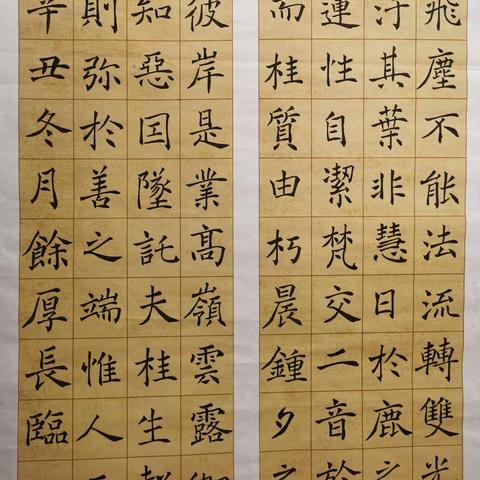 飛塵不能法流轉雙光
汙其葉非慧日於鹿之
連性自潔梵交二音於
而桂質由朽晨鐘夕之
彼岸是業高嶺雲露
知惡囙墜託夫桂生
則弥於善之端惟人
辛丑冬月餘厚長臨